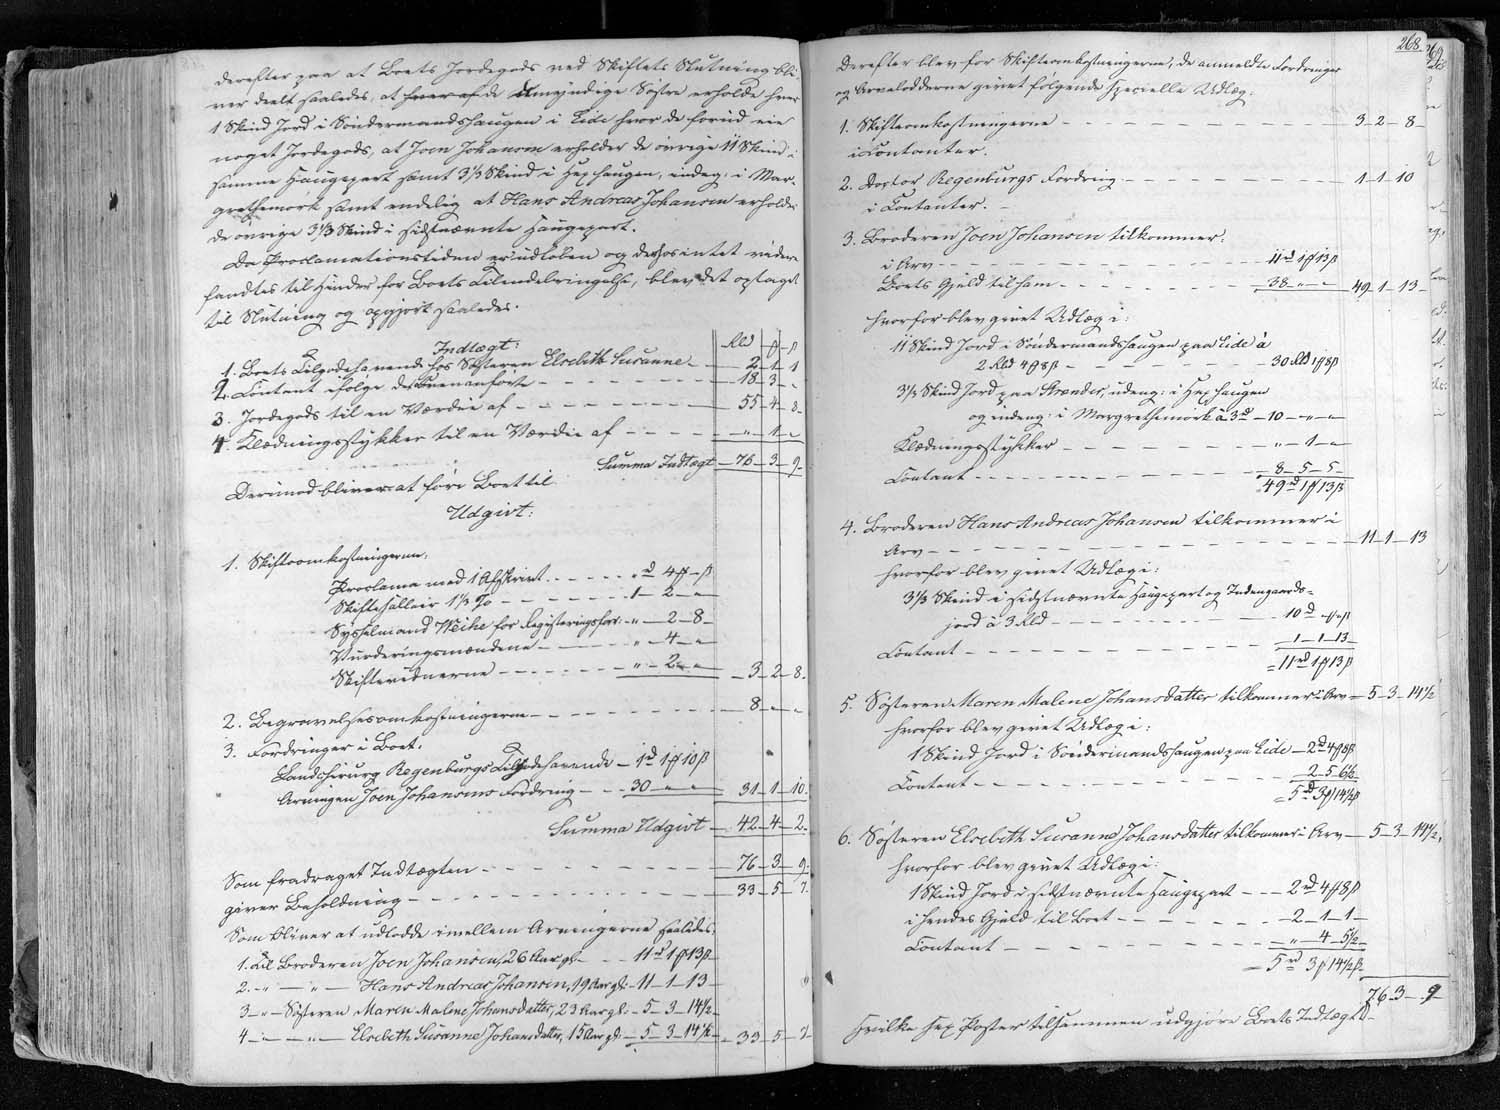 derefter paa at Boets Jordegods ved Skiftets Slutning bli-
ver deelt saaledes, at hver af de umyndige Søstre erholde hver
1 Skind Jord i Søndermandshaugen i Eide hvor de forud eie
noget Jordegods, at Joen Johansen erholder de øvrige 11 Skind i
samme Haugepart samt 3⅓ Skind i Hexhaugen, indeg: i Mar-
grethemørk samt endelig at Hans Andreas Johansen erholder
de øvrige 3⅓ Skind i sidstnævnte Haugepart.
Da Proclamationstiden er udløben og der hos intet videre
fandtes til Hinder for Boets Tilendebringelse, blev det optaget
til Slutning og opgjort saaledes.
Indtægt: Rbd ß
1. Boets Tilgodehavende hos Søsteren Elsebeth Susanne - 2 - 1 - 1
2. Contant ifølge anførte - 18 - 3 - "
3. Jordegods til en Værdie af - 55 - 4 - 8 -
4. Klædningsstykker til en Værdie af - " - 1 - "
Summa Indtægt - 76 - 3 - 9 -
Derimod bliver at føre Boet til
Udgivt:
1. Skifteomkostningerne.
Proclama med 1 Afskrivt - " d 4 - ß
Skiftesallair 1⅓ % - 1 - 2 - "
Sysselmand Weihe for Registeringsforr: - " - 2 - 8 -
Vurderingsmændene - " - 4 - "
Skiftevidnerne - " - 2 - " - 3 - 2 - 8 -
2. Begravelsesomkostningerne - 8 - " - "
3. Fordringer i Boet.
Landchirurg Regenburgs Tilgodehavende - 1 d 1 10 ß
Arvingen Joen Johansens Fordring - 30 - " - " - 31 - 1 - 10 -
Summa Udgivt - 42 - 4 - 2 -
Som fradraget Indtægten - 76 - 3 - 9 -
giver Beholdning - 33 - 5 - 7.
Som bliver at udlodde imellem Arvingerne saaledes.
1. Til Broderen Joen Johansen, 26 Aar gl. - 11 d 1 13 ß
2. - " - " - Hans Andreas Johansen, 19 Aar gl: - 11 - 1 - 13 -
3 - " - Søsteren Maren Malene Johansdatter, 23 Aar gl. - 5 - 3 - 14½ -
4 - " - " - Elsebeth Susanne Johansdatter, 15 Aar gl: - 5 - 3 - 14½ - 33 - 5 - 7 -
268.
Derefter blev for Skifteomkostningerne, de anmeldte Fordringer
og Arvelodderne givet følgende specielle Udlæg.
1. Skifteomkostningerne - 3 - 2 - 8 -
i Contanter.
2. Doctor Regenburgs Fordring - 1 - 1 - 10
i Contanter. -
3. Broderen Joen Johansen tilkommer:
i Arv - 11 d 1 13 ß
Boets Gjeld til ham - 38 - " - " - 49 - 1 - 13 -
hvorfor blev givet Udlæg i:
11 Skind Jord i Søndermandshaugen paa Eide à
2 Rbd 4 8 ß - 30 Rbd 1 8 ß
3⅓ Skind Jord paa Strender, udeng: i Hexhaugen
og indeng: i Margrethemørk à 3 d - 10 - " - "
Klædningsstykker - " - 1 - "
Contant - 8 - 5 - 5 -
49 d 1 13 ß
4. Broderen Hans Andreas Johansen tilkommer i
Arv - 11 - 1 - 13
hvorfor blev givet Udlæg i:
3⅓ Skind i sidstnævnte Haugepart og Indengaards-
jord à 3 Rbd - 10 d - " - " ß
Contant - 1 - 1 - 13 -
= 11 rd 1 13 ß
5. Søsteren Maren Malene Johansdatter tilkommer i Arv - 5 - 3 - 14½
hvorfor blev givet Udlæg i:
1 Skind Jord i Søndermandshaugen paa Eide - 2 d 4 8 ß
Contant - 2 - 5 6½ -
= 5 d 3 14½ ß
6. Søsteren Elsebeth Susanne Johansdatter tilkommer i Arv - 5 - 3 - 14½
hvorfor blev givet Udlæg i:
1 Skind Jord i sidstnævnte Haugepart - 2 rd 4 8 ß
i hendes Gjeld til Boet - 2 - 1 - 1 -
Contant - " 4 - 5½ -
= 5 rd 3 14½ ß
76 3 - 9
Hvilke sex Poster tilsammen udgjøre Boets Indtægt.